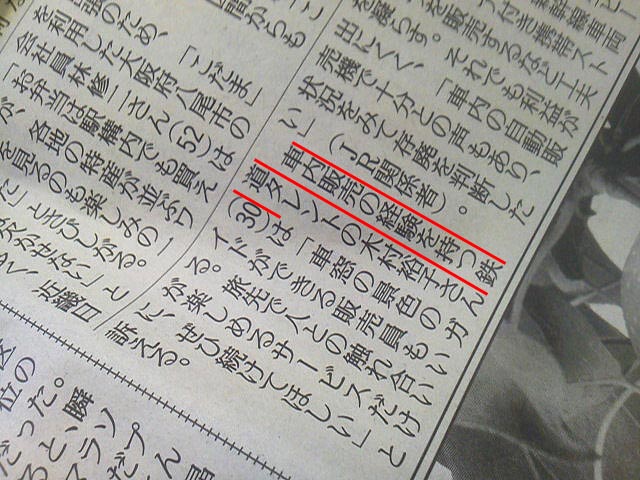 新幹線車両
付き携帯スト
を販売するなど工夫
を凝らす。それでも利益が
出にくく、「車内の自動販
売機で十分との声もあり、
状況をみて存廃を判断した
い」(JR関係者)。
車内販売の経験を持つ鉄
道タレントの木村裕子さん
(30)は「車窓の景色のガ
イドができる販売員もい
る。旅先で人との触れ合い
が楽しめるサービスだけ
に、ぜひ続けてほしい」と
訴える。
間からも
のため、「こだま」
を利用した大阪府八尾市の
会社員林修二さん(52)は
「お弁当は駅構内でも買え
が、各地の特産が並ぶワ
を見るのも楽しみの
だ」とさびしがる。
欠かせない」と
く、近畿日
位の
った。瞬